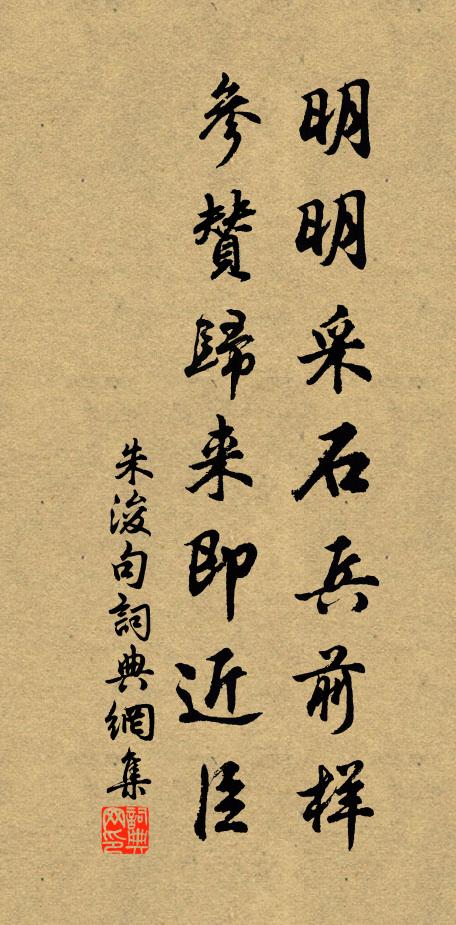 明明采石兵前样
參贊歸来即近臣
朱浚句詞典網集
詞典网印